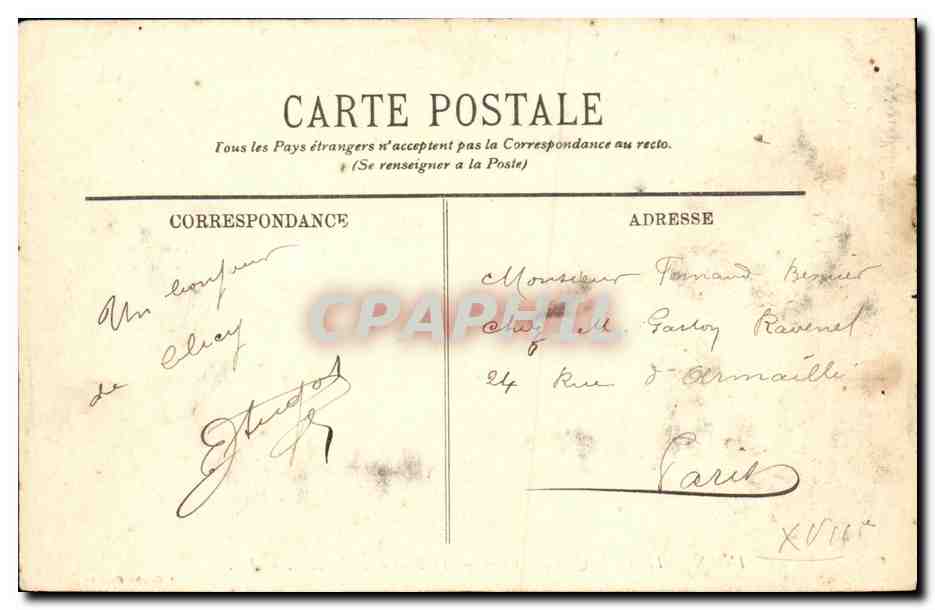 CARTE POSTALE
Tous les Pays étrangers n'acceptent pas la Correspondance au recto.
(Se renseigner a la Poste)
CORRESPONDANCE
Un bonjour
de
ADRESSE
Monsieur Fernand Bernier
chez M. Gaston Ravenel
24 Rue d'Armaillé
Paris
XVIIe
CPAPHIL